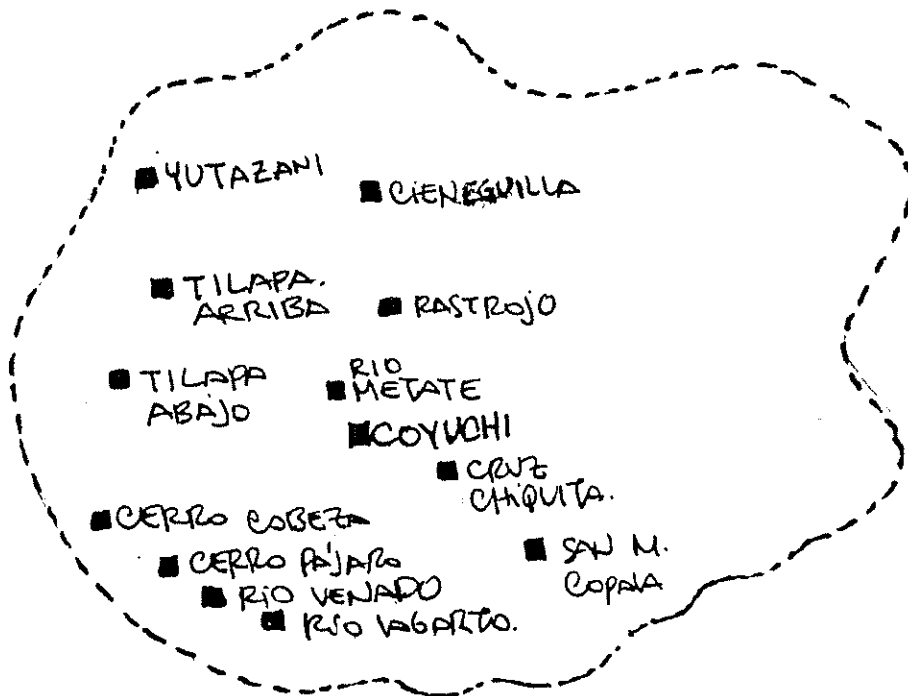 YUTAZANI
CIENEGUILLA
TILAPA.
ARRIBA
RASTROJO
TILAPA
ABAJO
RIO
METATE
COYUCHI
CRUZ
CHIQUITA.
CERRO CABEZA
CERRO PÁJARO
RIO VENADO
RIO LAGARTO.
SAN M.
COPALA